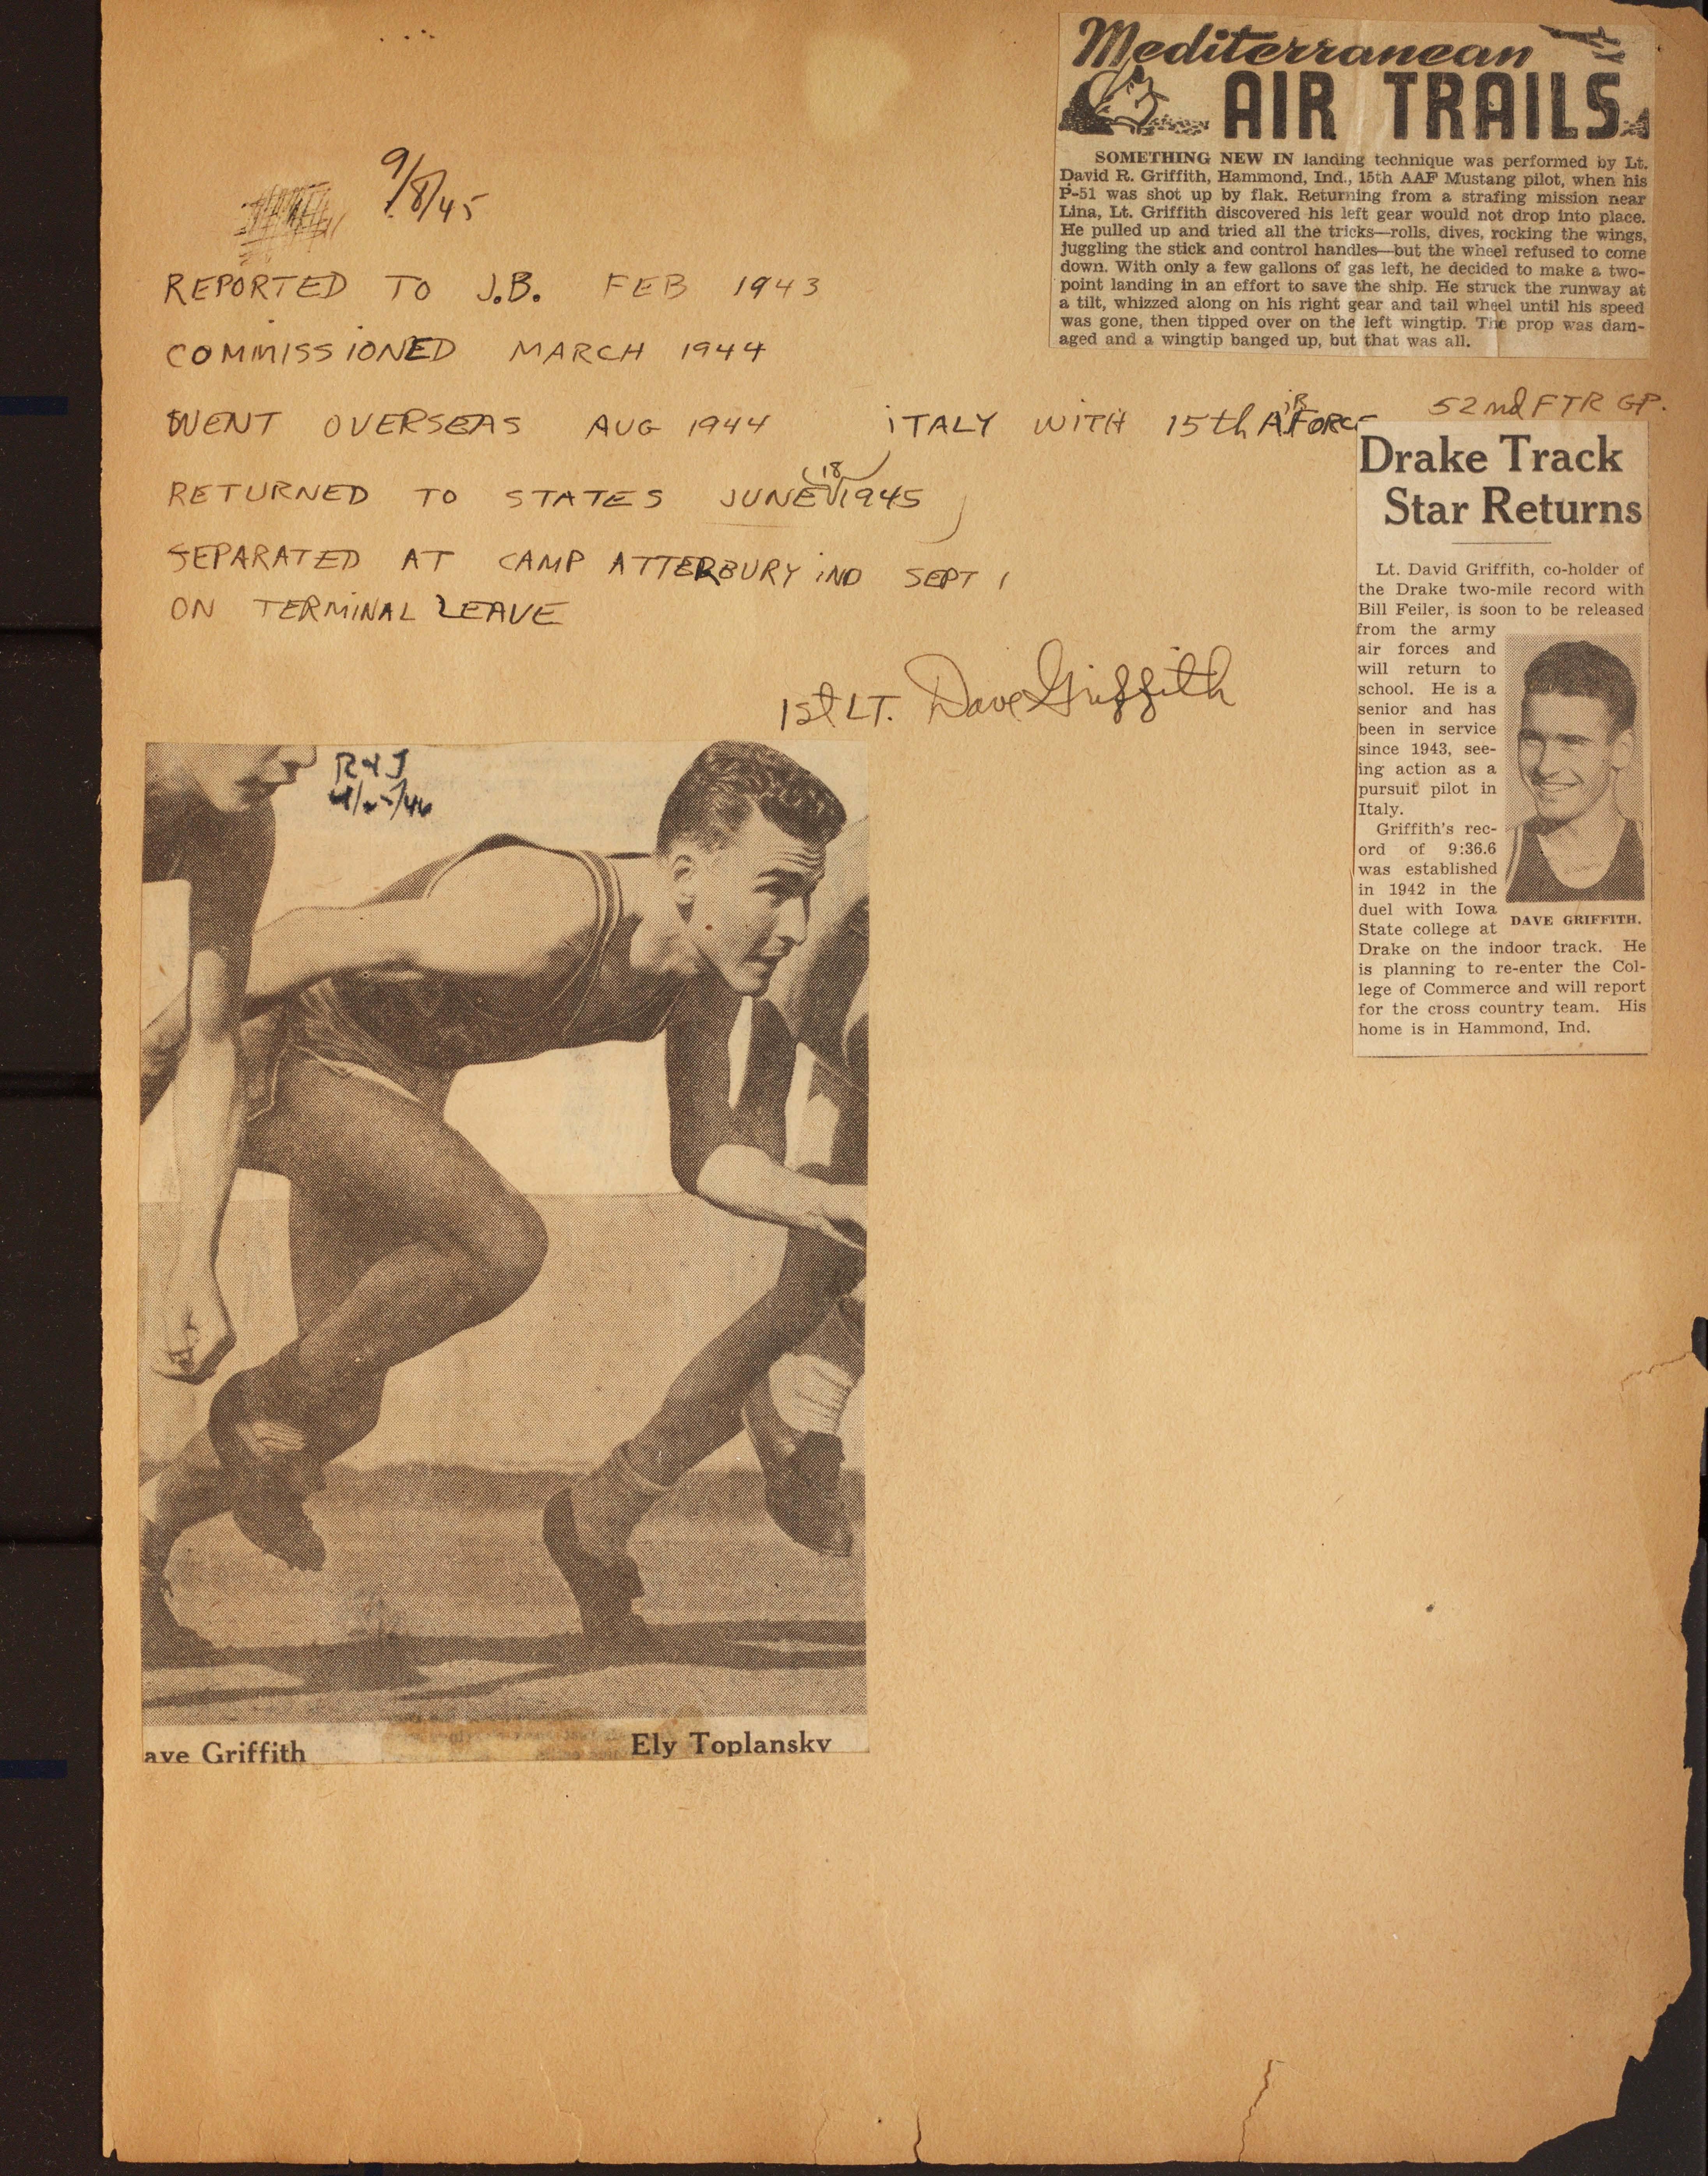 Mediterranean
AIR TRAILS
SOMETHING NEW IN landing technique was performed by Lt.
David R. Griffith, Hammond, Ind., 15th AAF Mustang pilot, when his
P-51 was shot up by flak. Returning from a strafing mission near
Lina, Lt. Griffith discovered his left gear would not drop into place.
He pulled up and tried all the tricks—rolls, dives, rocking the wings,
juggling the stick and control handles—but the wheel refused to come
down. With only a few gallons of gas left, he decided to make a two-
point landing in an effort to save the ship. He struck the runway at
a tilt, whizzed along on his right gear and tail wheel until his speed
was gone, then tipped over on the left wingtip. The prop was dam-
aged and a wingtip banged up, but that was all.
9/8/45
REPORTED TO J.B. FEB 1943
COMMISSIONED MARCH 1944
WENT OVERSEAS AUG 1944 ITALY WITH 15th AIR FORCE 52nd FTR GP.
RETURNED TO STATES JUNE 18 1945
SEPARATED AT CAMP ATTERBURY IND SEPT 1
ON TERMINAL LEAVE
1st LT. Dave Griffith
Drake Track
Star Returns
Lt. David Griffith, co-holder of
the Drake two-mile record with
Bill Feiler, is soon to be released
from the army
air forces and
will return to
school. He is a
senior and has
been in service
since 1943, see-
ing action as a
pursuit pilot in
Italy.
Griffith's rec-
ord of 9:36.6
was established
in 1942 in the
duel with Iowa
State college at
DAVE GRIFFITH.
Drake on the indoor track. He
is planning to re-enter the Col-
lege of Commerce and will report
for the cross country team. His
home is in Hammond, Ind.
R&J
ave Griffith
Ely Toplansky